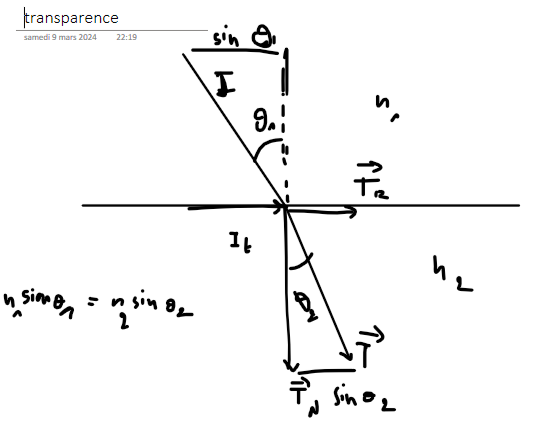 transparence
samedi 9 mars 2024 22:19
sin θ₁
I
θ₁
n₁
T⃗ₜ₂
I_t
n₂
n₁ sin θ₁ = n₂ sin θ₂
θ₂
T⃗
T⃗_N sin θ₂